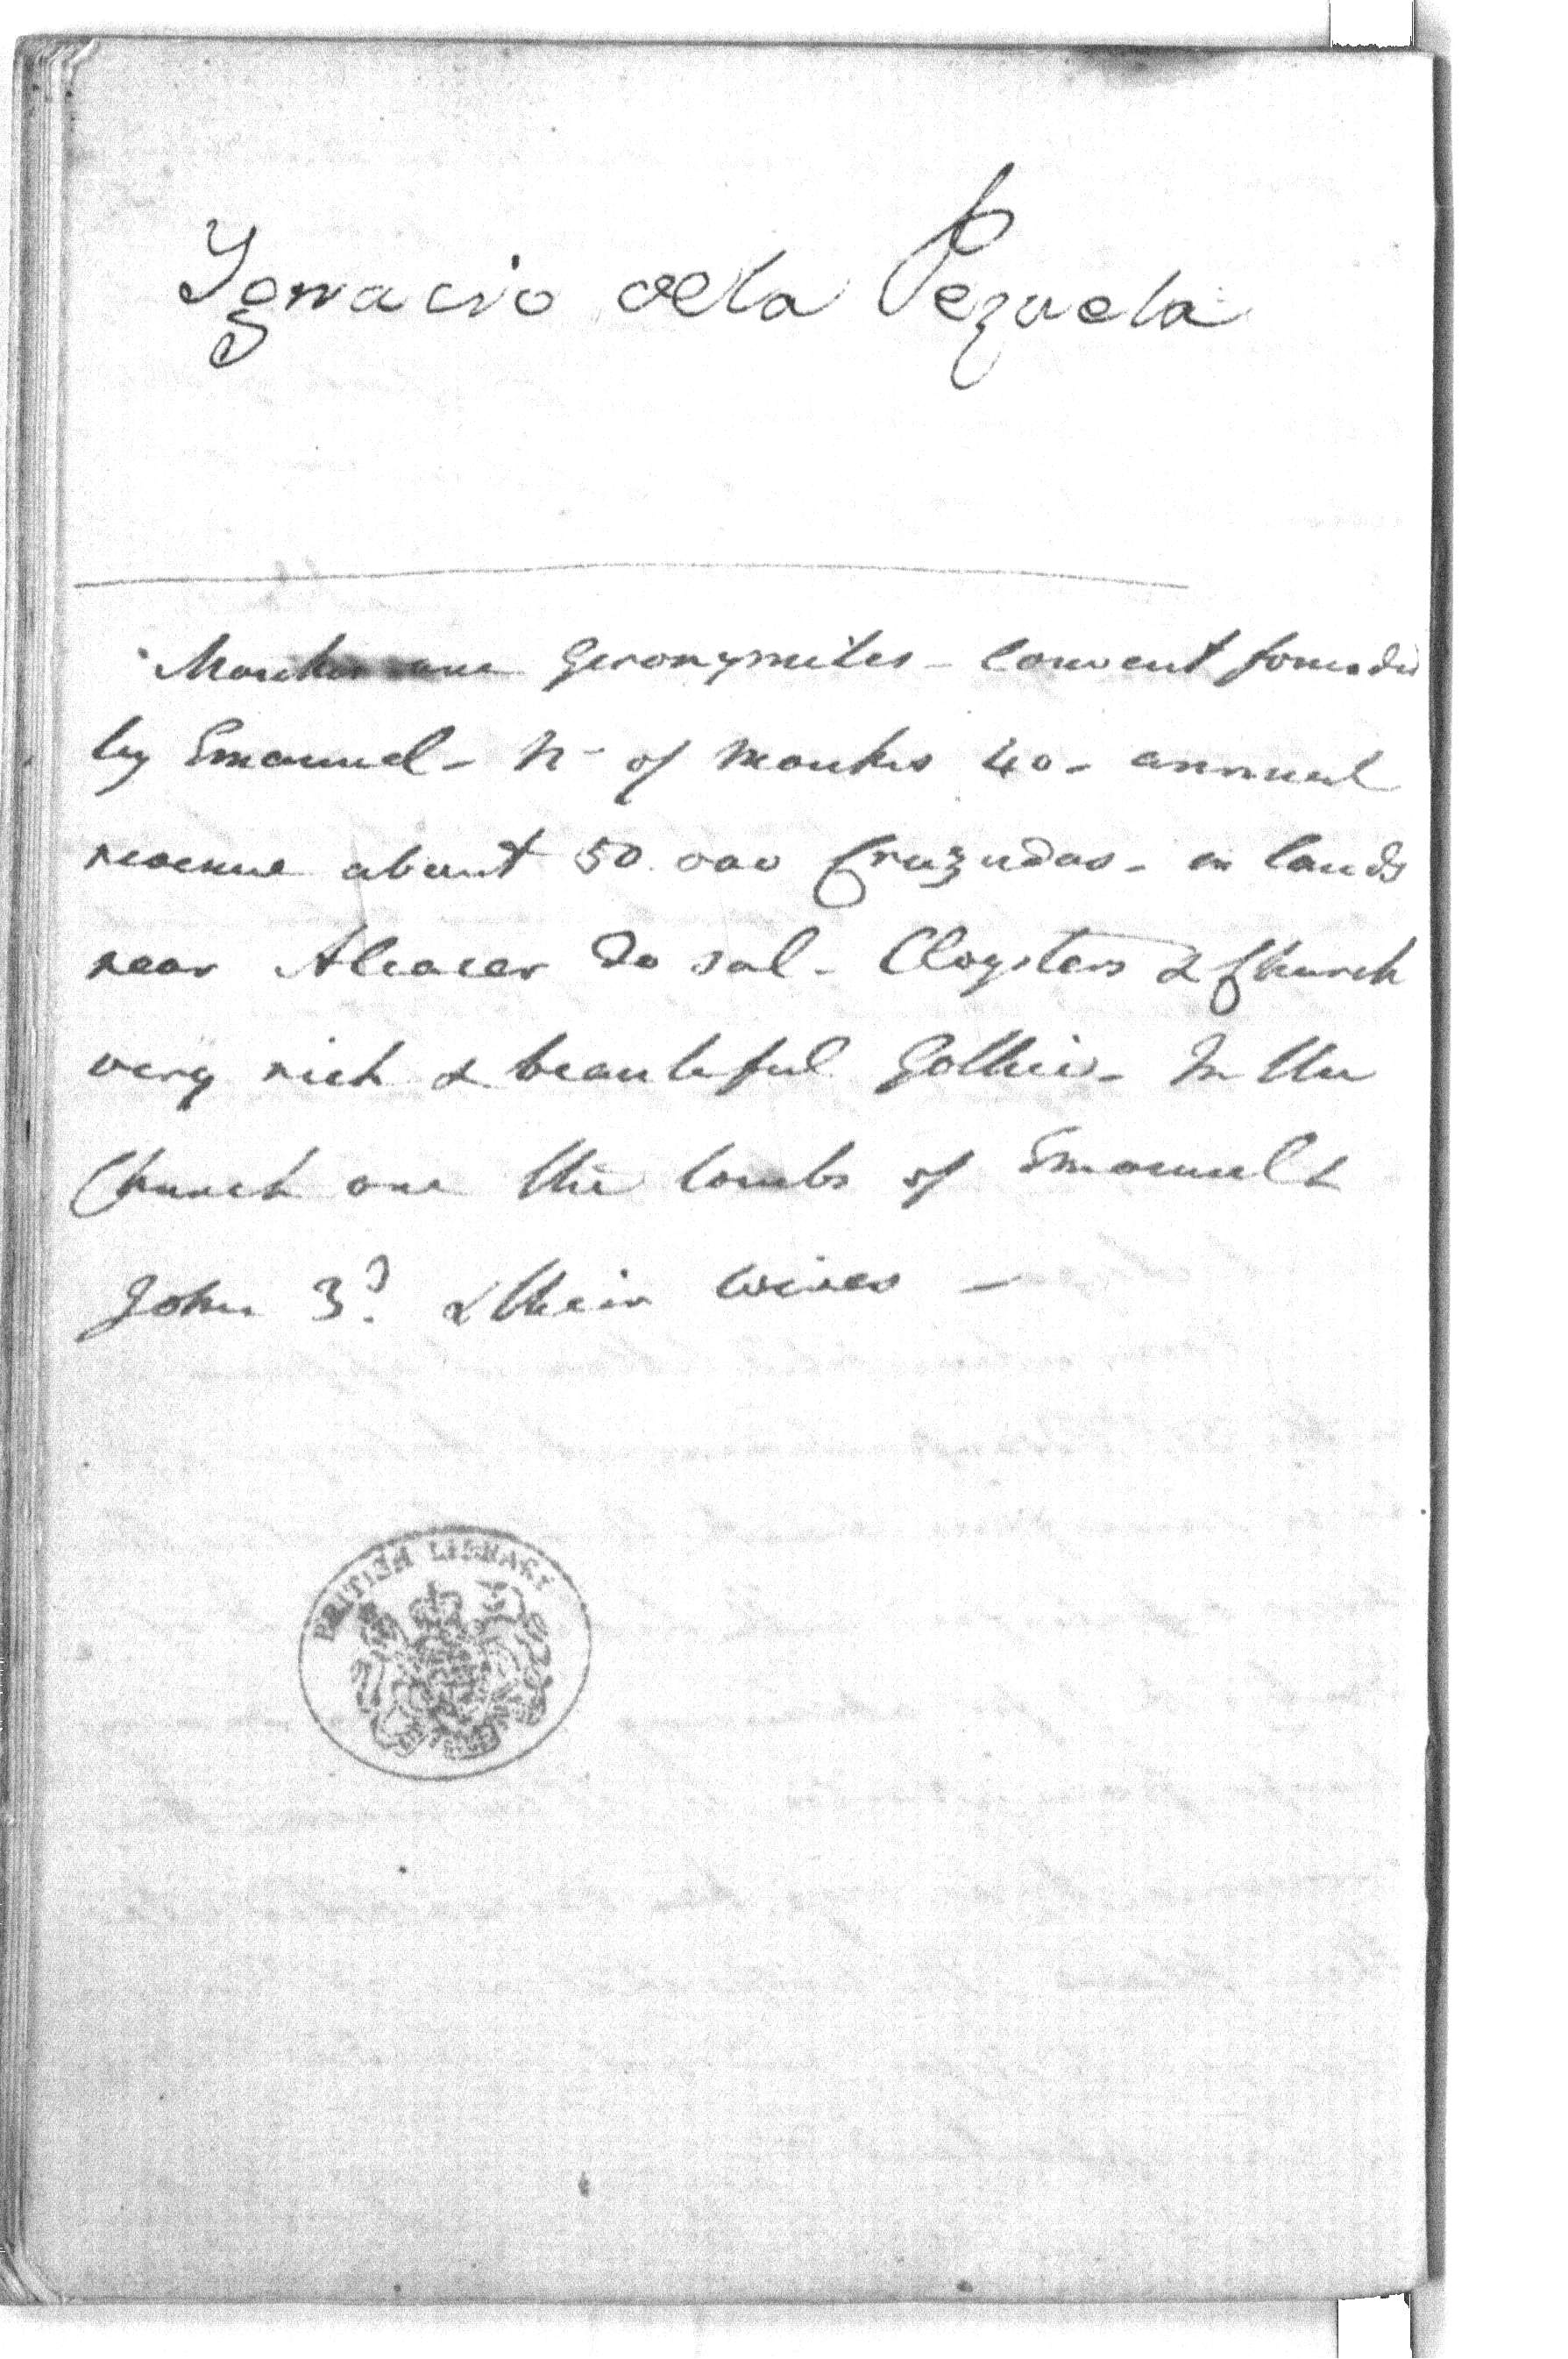 Ygnacio de la Pezuela
Monks are Geronymites - Convent founded
by Emanuel - No of Monks 40 - annual
revenue about 50.000 Cruzados - in lands
near Alcacer do sal - Cloysters & Church
very rich & beautiful Gothic - In the
Church are the tombs of Emanuel &
John 3d. & their wives -
BRITISH LIBRARY